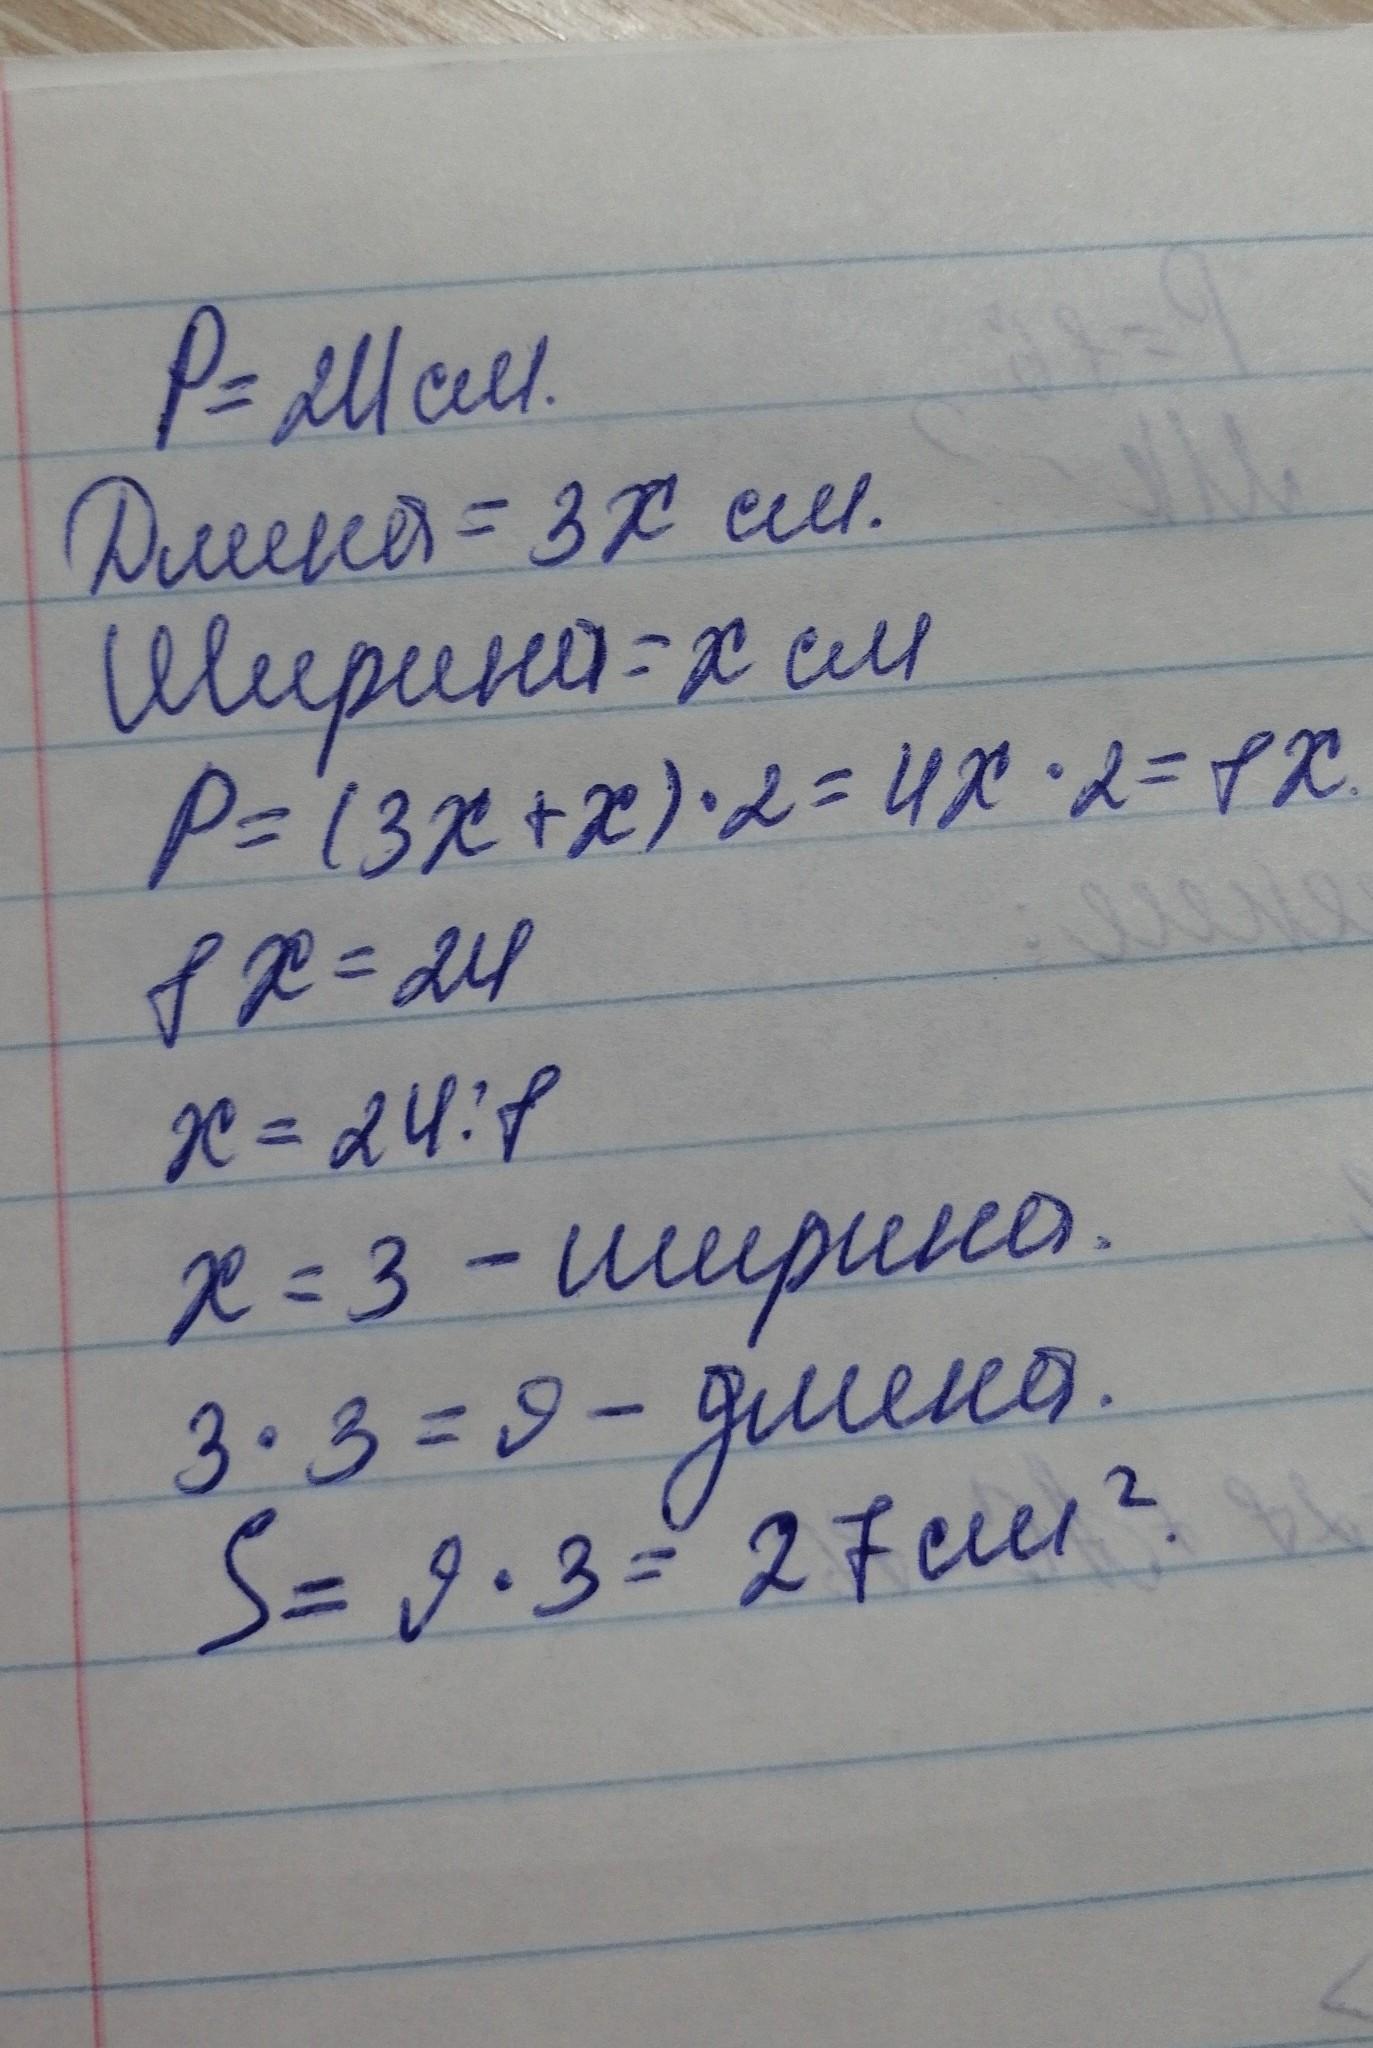 P = 24 см.
Длина = 3x см.
Ширина = x см
P = (3x + x) · 2 = 4x · 2 = 8x.
8x = 24
x = 24 : 8
x = 3 – ширина.
3 · 3 = 9 – длина.
S = 9 · 3 = 27 см².